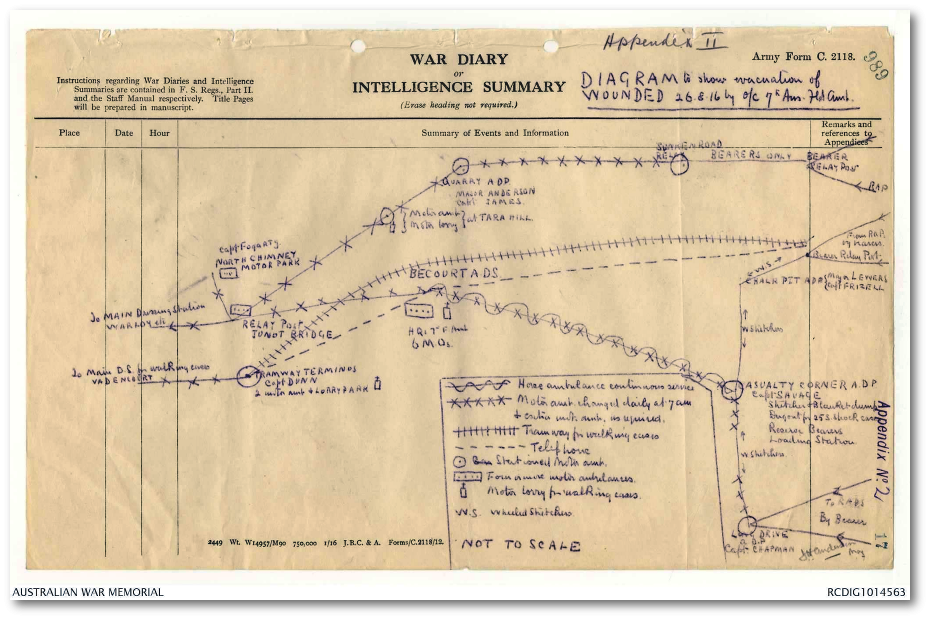 Appendix II
WAR DIARY
or
INTELLIGENCE SUMMARY
(Erase heading not required.)
Army Form C. 2118.
989
Instructions regarding War Diaries and Intelligence
Summaries are contained in F. S. Regs., Part II.
and the Staff Manual respectively. Title Pages
will be prepared in manuscript.
DIAGRAM to show evacuation of
WOUNDED 26.8.16 by o/c 7th Aus. Fld Amb.
Place
Date
Hour
Summary of Events and Information
Remarks and
references to
Appendices
SUNKEN ROAD
RELAY
BEARERS ONLY
BEARER
RELAY POST
RAP
QUARRY ADP
MAJOR ANDERSON
Capt JAMES.
Motor amb
Motor lorry
at TARA HILL
Capt Fogarty
NORTH CHIMNEY
MOTOR PARK
From RAP
by bearers
Bearer Relay Post
W.S.
CHALK PIT ADP
Major LEWERS
Capt FRIZELL
BECOURT ADS
To MAIN Dressing Station
WARLOY
RELAY POST
JUNOT BRIDGE
HQ. 7 F Amb
6 MOs
W Stretchers
To Main D.S. for walking cases
VADENCOURT
TRAMWAY TERMINOS
Capt DUNN
2 motor amb + LORRY PARK
CASUALTY CORNER A.D.P
Capt SAVAGE
Stretcher & Blanket dump
Dugout for 25 S. shock cases
Reserve Bearers
Loading Station
W Stretchers
Horse ambulance continuous service
Motor amb. changed daily at 7 am
+ extra mot. amb. as required.
Tramway for walking cases
Telephone
Stationed Motor amb.
Four or more motor ambulances.
Motor lorry for walking cases.
W.S. Wheeled Stretchers
NOT TO SCALE
To RAPs
By Bearer
LONG DRIVE
A.D.P
Capt. CHAPMAN
Appendix No 21
17
2449 Wt. W14957/M90 750,000 1/16 J.B.C. & A. Forms/C.2118/12.
AUSTRALIAN WAR MEMORIAL
RCDIG1014563